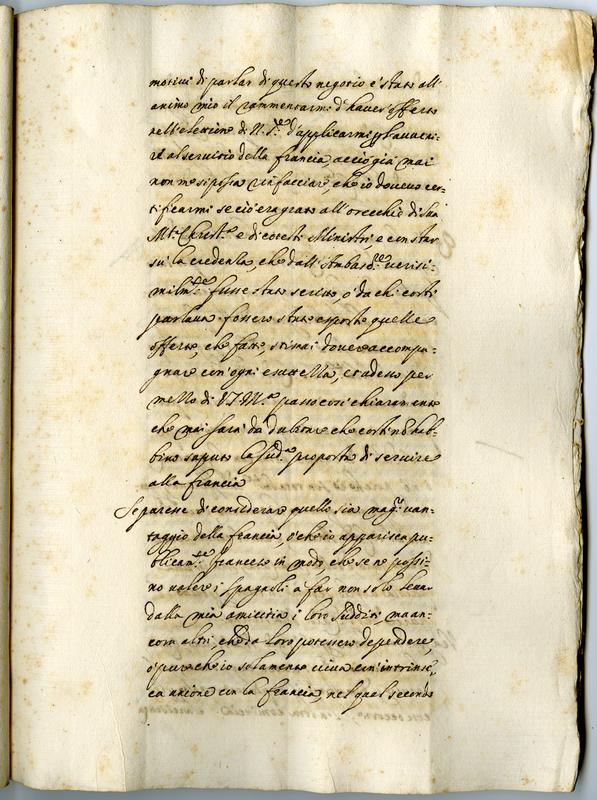 motivi di parlar di questo negotio è stato all'
animo mio il rammentarmi d'haver offerto
nell'elettione di N. S.re d'applicarmi p l'avveni-
re al servitio della francia, acciò già mai
non mi si possa rinfacciare, che io dovevo cer-
tificarmi se ciò era grato all'orecchie di Sua
Mt. Christ.a e di cotesti Ministri, e con star
sù la credenza, che dall'Ambas.re verisi-
milm.te fusse stato scritto, ò da chi costì
parlava fossero state esposte quelle
offerte, che fatte, stimai dover accompa-
gnare con ogni esattezza, et adesso per
mezzo di V. S. Ill.ma passo così chiaramente
che mai sarà da dubitare che costì nò hab-
bino saputo la sud.a proposta di servire
alla francia
Se paresse di considerare quello sia mag.r van-
taggio della francia, ò che io apparisca pu-
blicam.te francese in modo che se ne possi-
no valere i spagnoli à far non solo levar
dalla mia amicitia i loro sudditi ma an-
com altri che da loro potessero dependere,
ò pure che io solamente viva con intrinse-
ca unione con la francia, nel qual secondo